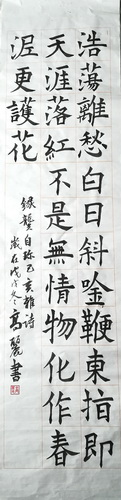 浩蕩離愁白日斜唫鞭東指即
天涯落紅不是無情物化作春
泥更護花
錄龔自珍己亥雜詩
歲在戊戌冬高麗書